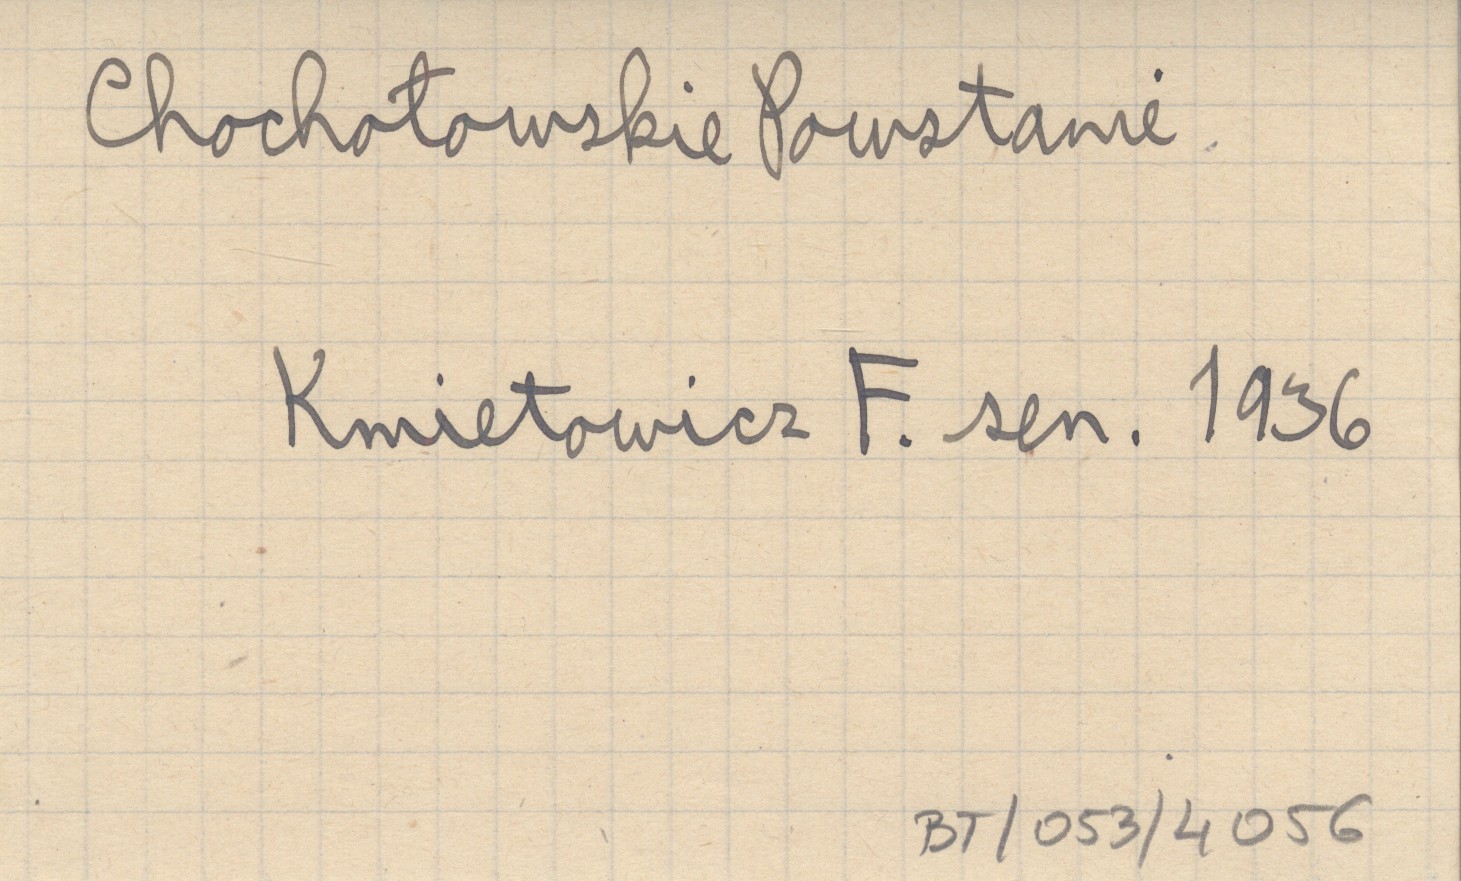 Chochołowskie Powstanie.
Kmietowicz F. sen. 1936
BT/053/4056